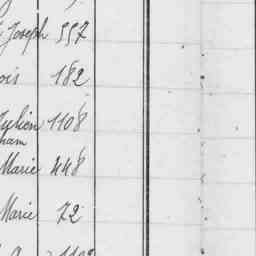 Joseph 557
ois 182
Julien 1108
ham
Marie 448
Marie 72